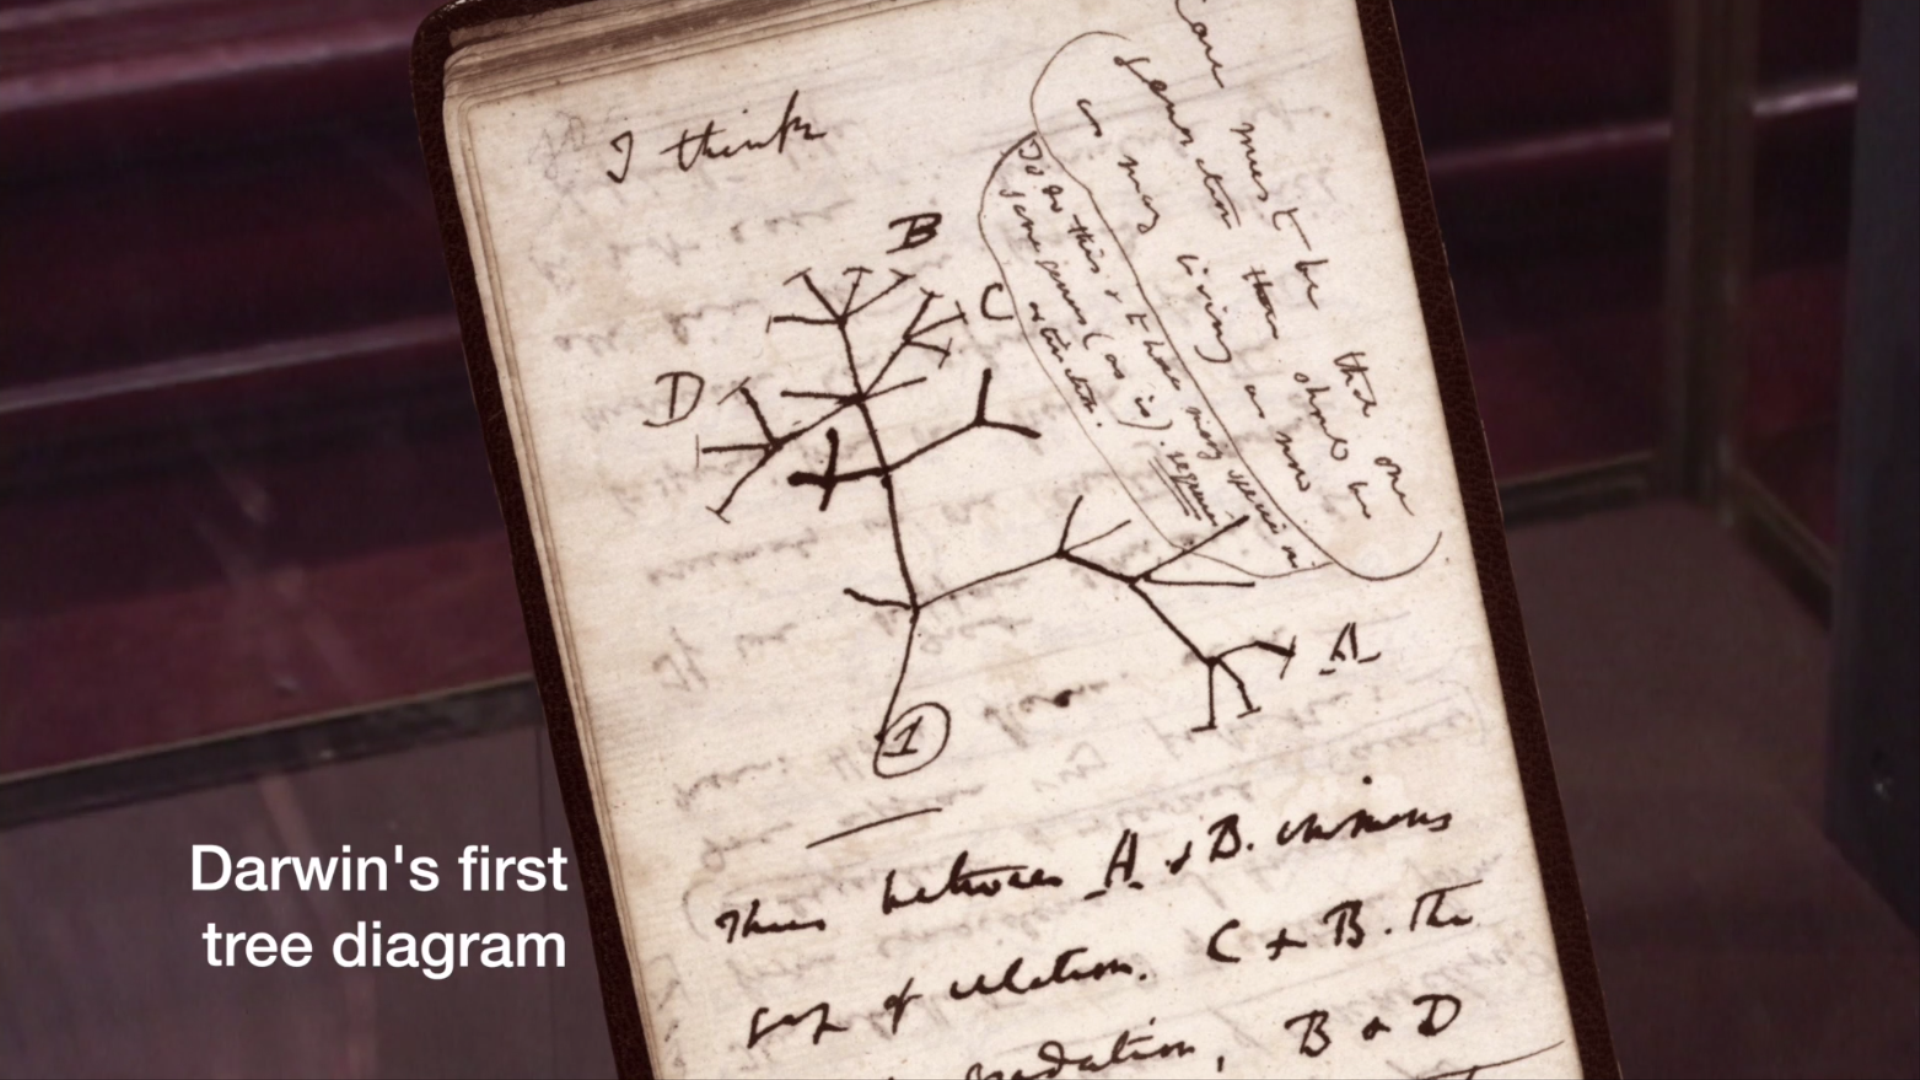 I think
Case must be that one
generation then should be
as many living as now
To do this & to have many species in
same genus (as is). requires
extinction.
B
C
D
A
1
Thus between A & B. immense
gap of relation. C & B. The
gradation, B & D
Darwin's first
tree diagram